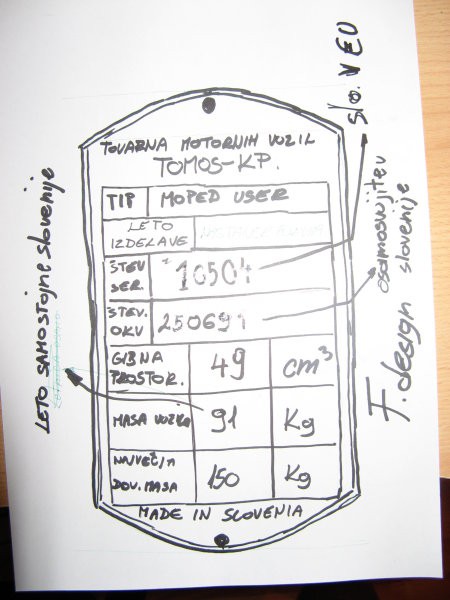 TOVARNA MOTORNIH VOZIL
TOMOS-KP.
TIP MOPED USER
LETO IZDELAVE
ŠTEV SER. 10504
ŠTEV. OKV 250691
GIBNA PROSTOR. 49 cm³
MASA VOZILA 91 Kg
NAJVEČJA DOV. MASA 150 Kg
MADE IN SLOVENIA
LETO SAMOSTOJNE SLOVENIJE
slo. V EU
osamosvojitev slovenije
F. design